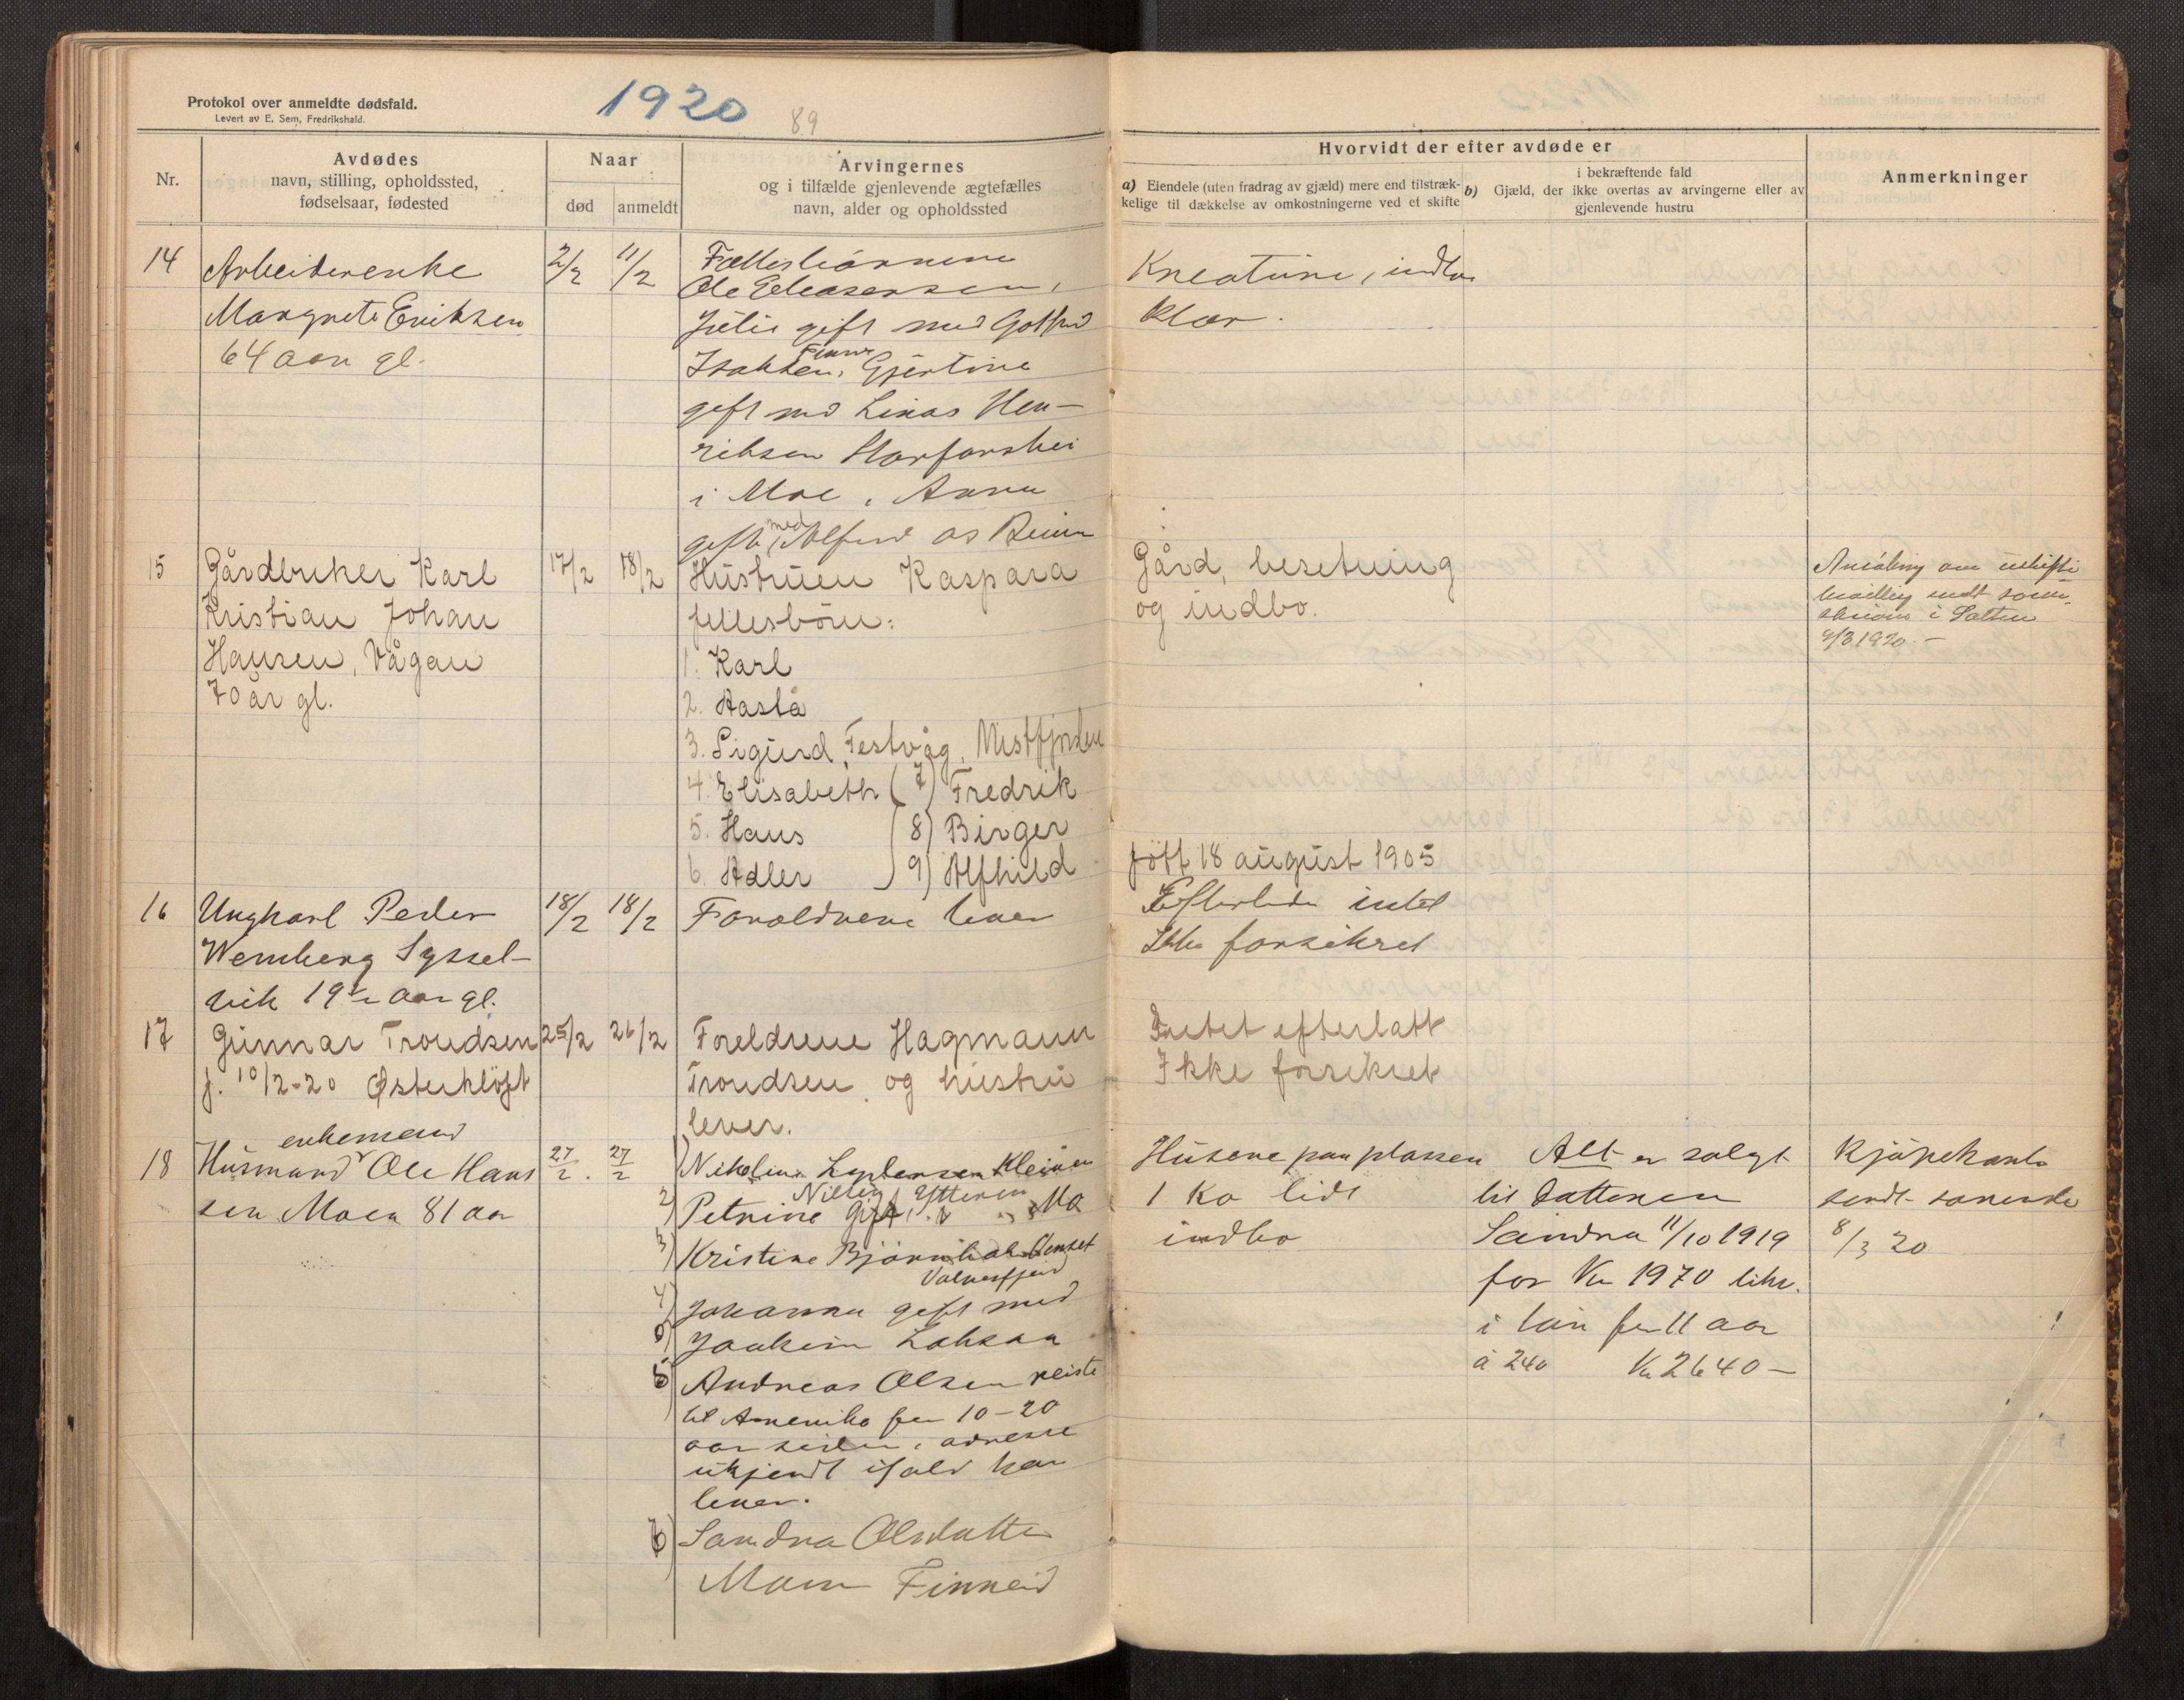 Protokol over anmeldte dødsfald.
Levert av E. Sem, Fredrikshald.
1920
89
Nr.
Avdødes
navn, stilling, opholdssted,
fødselsaar, fødested
Naar
død
anmeldt
Arvingernes
og i tilfælde gjenlevende ægtefælles
navn, alder og opholdssted
Hvorvidt der efter avdøde er
a) Eiendele (uten fradrag av gjæld) mere end tilstræk-
kelige til dækkelse av omkostningerne ved et skifte
i bekræftende fald
b) Gjæld, der ikke overtas av arvingerne eller av
gjenlevende hustru
Anmerkninger
14
Arbeiderenke
Margrete Eriksen
64 aar gl.
2/2
11/2
Fællesbørnene
Ole Eliasersen,
Julie gift med Gotfred
Isaksen, Gjertine
gift med Linas Hen-
riksen Storforshei
i Moe, Anna
gift med Alfred
Kreature, indbo
klær.
15
Gårdbruker Karl
Kristian Johan
Hansen, Vågan
70 år gl.
17/2
18/2
Hustruen Kaspara
fellesbörn:
1. Karl
2. Aasta
3. Sigurd, Festvåg,
4. Elisabeth
5. Hans
6. Adler
7) Fredrik
8) Birger
9) Alfhild
Gård, besetning
og indbo.
født 18 august 1905
om uskifte
bevilling sendt soren-
skriver i Salten
9/3 1920. -
16
Ungkarl Peder
Wemberg Syssel-
vik 19 1/2 aar gl.
18/2
18/2
Forældrene lever
Efterlader intet
Ikke forsikret
17
Gunnar Trondsen
f. 10/2-20 Østerkløft
25/2
26/2
Foreldrene Hagmann
Trondsen og hustru
lever.
Intet efterlatt
Ikke forsikret
18
enkemand
Husmand Ole Hans
sen Moen 81 aar
27/2
27/2
1) Nikoline
2) Petrine Gift Ytteren Mo
3) Kristine
Valnesfjord
4) Johanna gift med
Joakim
5 Andreas Olsen reiste
til Amerika for 10-20
aar siden, adresse
ukjendt ifald han
lever.
6) Sandra Olsdatter
Moen Finneid
Husene paa plassen
1 Ko lidt
indbo
Alt er solgt
til datteren
Sandra 11/10 1919
for Kr 1970
i for 11 aar
á 240 Kr 2640 -
Kjøpekontr
sendt sorensk
8/3 20